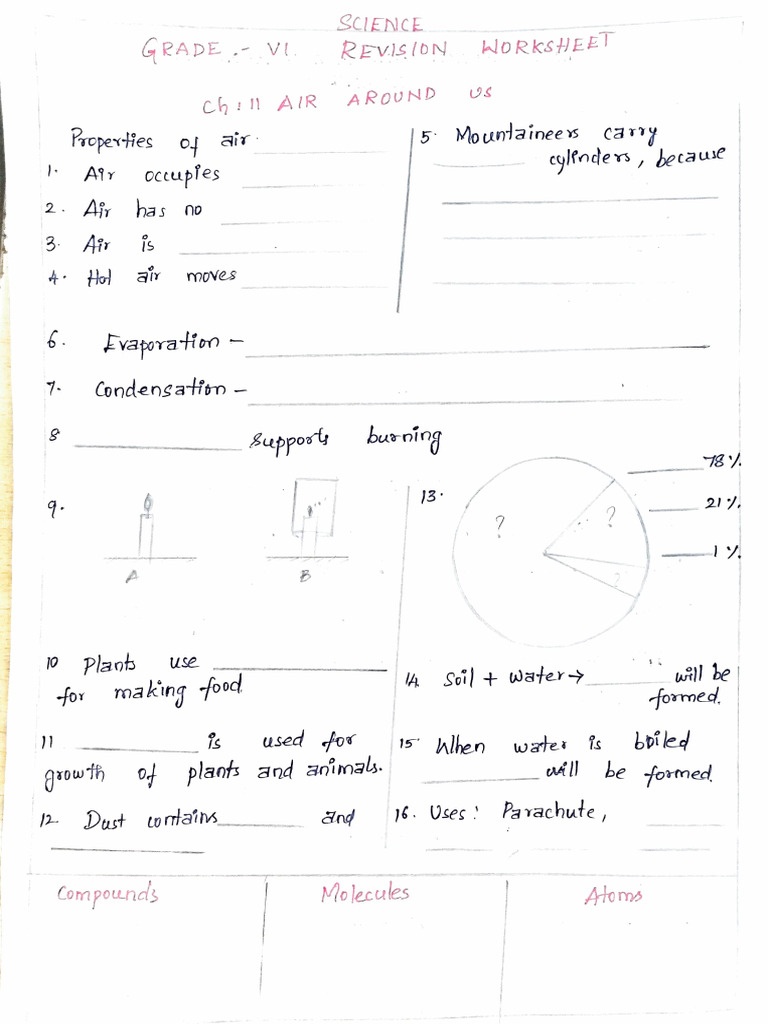 SCIENCE
GRADE :- VI REVISION WORKSHEET
Ch : 11 AIR AROUND US
Properties of air
1. Air occupies
2. Air has no
3. Air is
4. Hot air moves
5. Mountaineers carry
cylinders, because
6. Evaporation –
7. Condensation –
8 supports burning
9.
A B
13.
78 %.
21 %.
1 %.
? ? ?
10 Plants use
for making food.
11 is used for
growth of plants and animals.
12. Dust contains and
14. Soil + water → will be
formed.
15. When water is boiled
will be formed.
16. Uses : Parachute,
Compounds Molecules Atoms